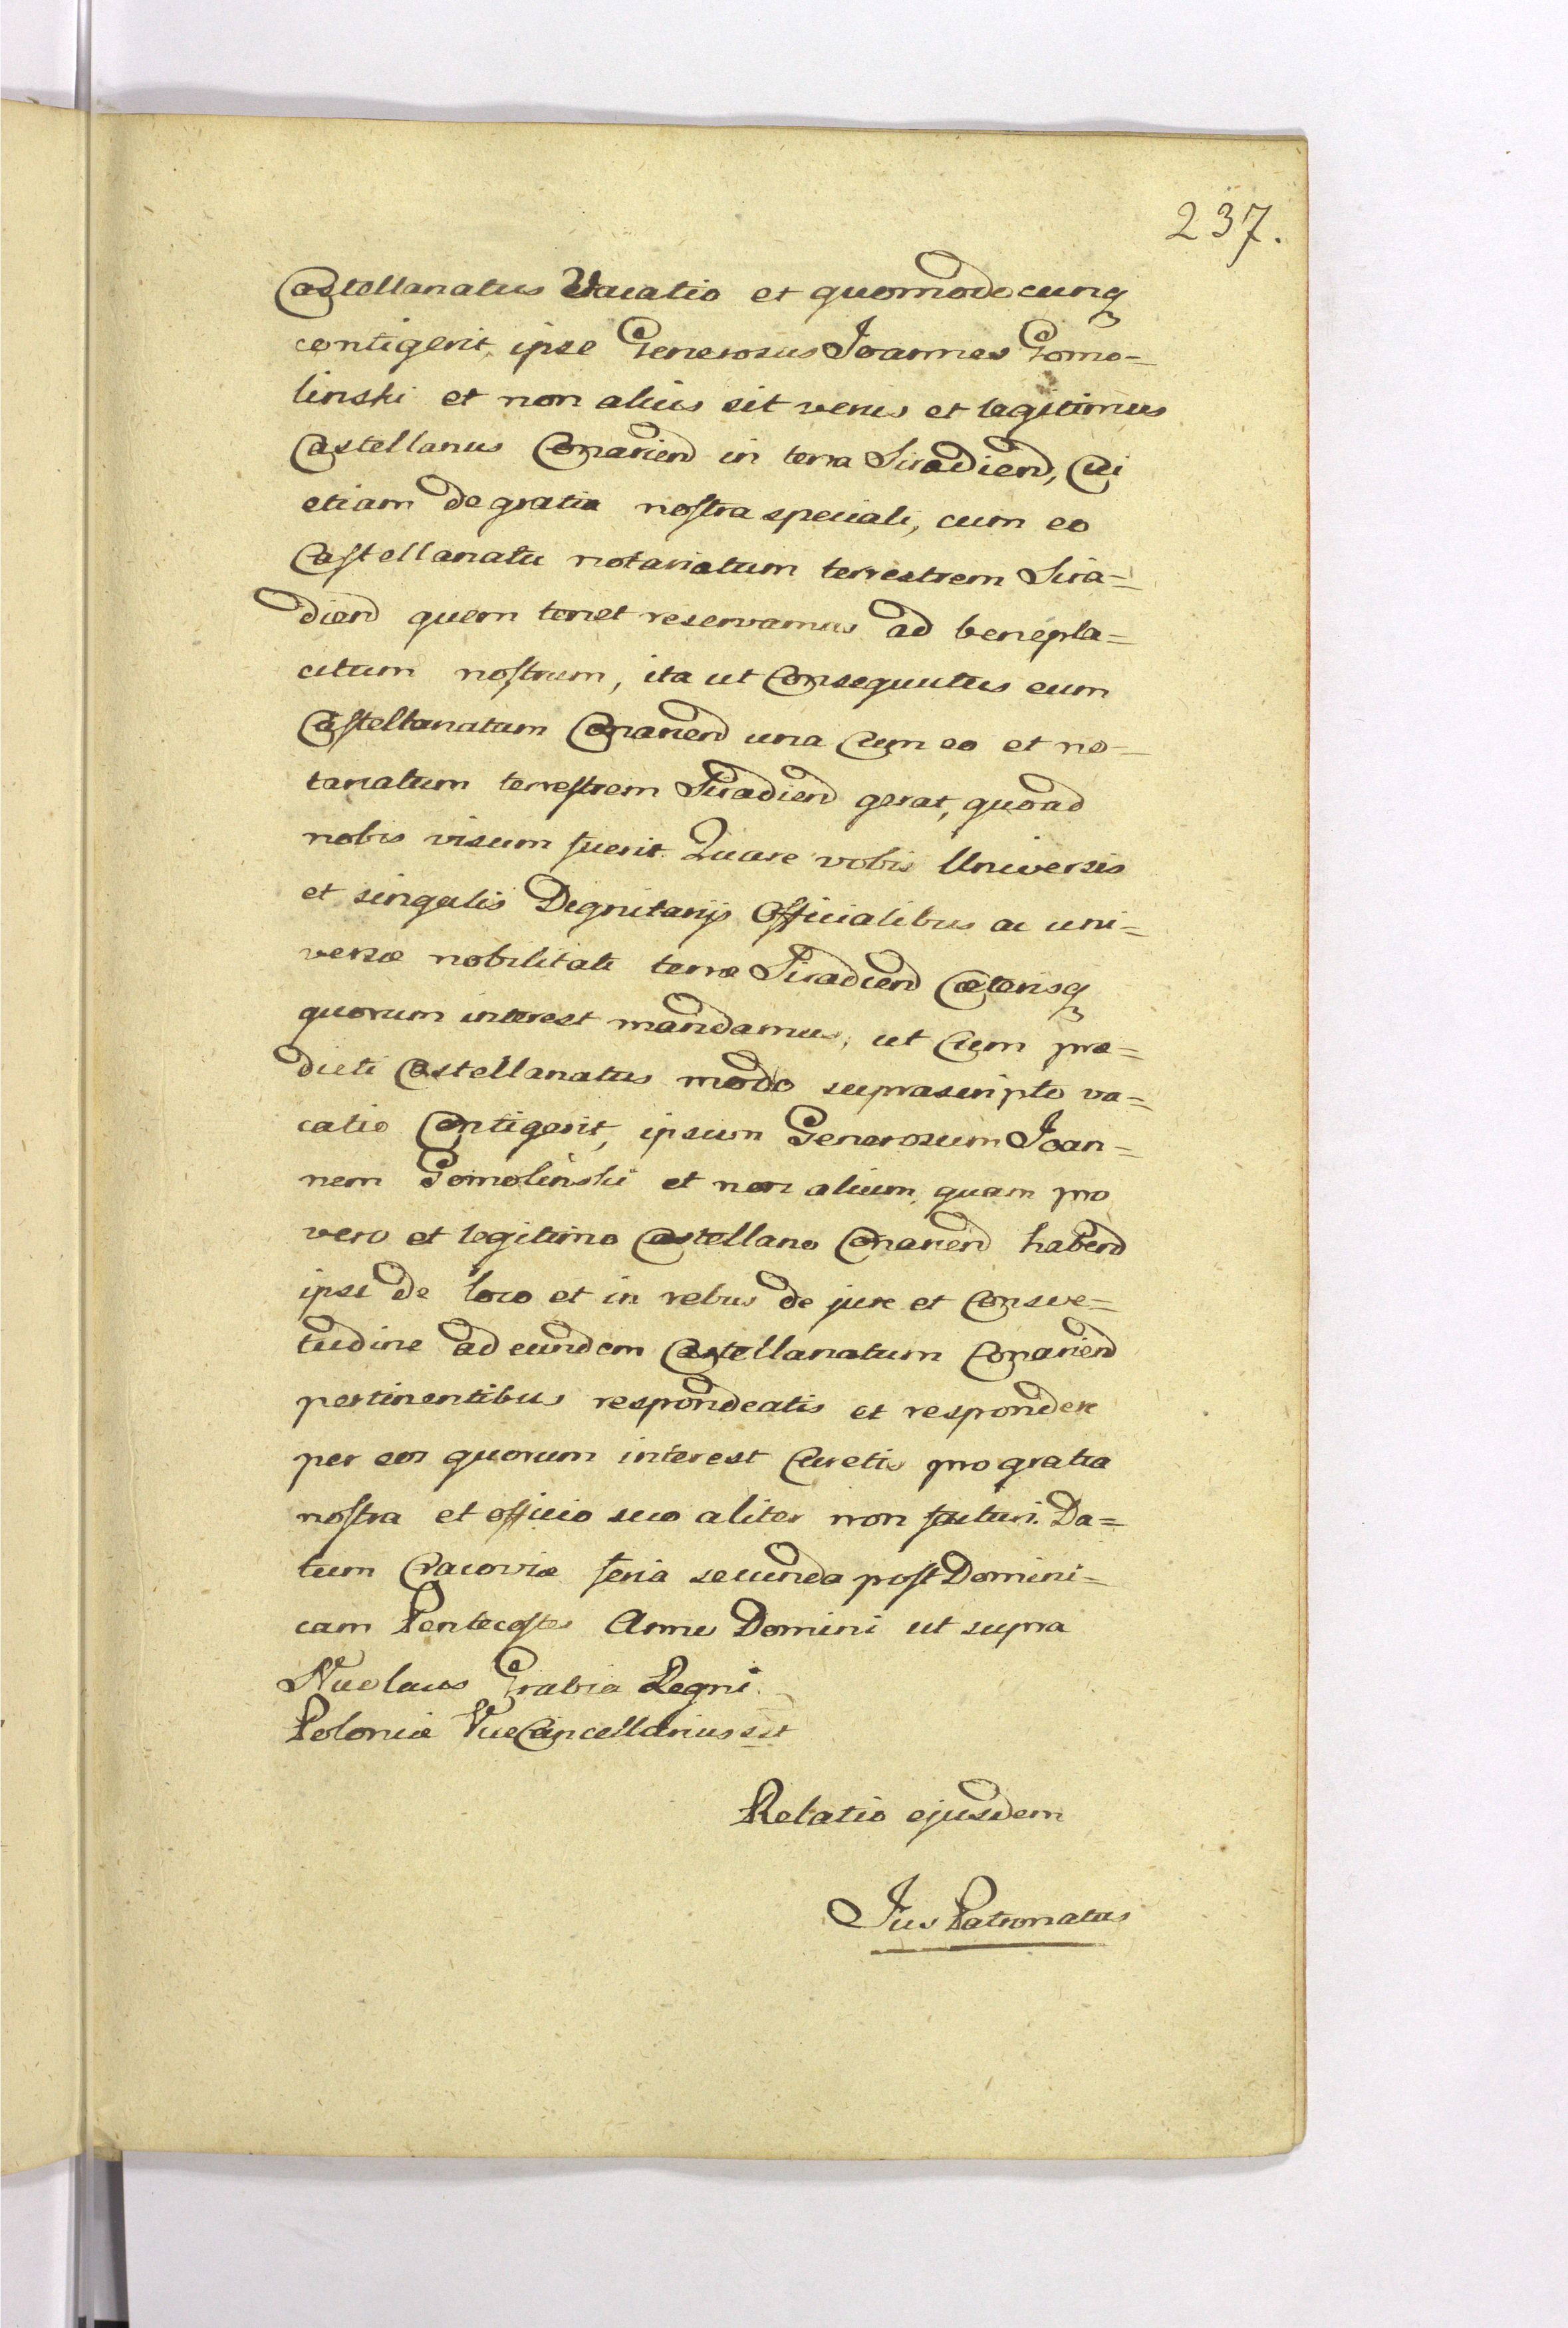 237.
Castellanatus Vacatio et quomodocunq
contigerit, ipse Generosus Joannes Gomo-
linski et non alius sit verus et legitimus
Castellanus Conarien in terra Siradien, Cui
etiam de gratia nostra speciali, cum eo
Castellanatu notariatum terrestrem Sira=
dien quem tenet reservamus ad benepla=
citum nostrum, ita ut Consequutus eum
Castellanatum Conarien una Cum eo et no-
tariatum terrestrem Siradien gerat, quoad
nobis visum fuerit. Quare vobis Universis
et singulis Dignitarijs Officialibus ac uni=
versæ nobilitati terræ Siradien Cæterisq
quorum interest mandamus, ut Cum præ=
dicti Castellanatus modo suprascripto va=
catio Contigerit, ipsum Generosum Joan=
nem Gomolinski et non alium, quam pro
vero et legitimo Castellano Conarien haben
ipsi de loco et in rebus de jure et Consve=
tudine ad eundem Castellanatum Conarien
pertinentibus respondeatis et respondere
per eos quorum interest Curetis pro gratia
nostra et officio suo aliter non facturi. Da=
tum Cracoviæ feria secunda post Domini=
cam Pentecostes Anno Domini ut supra
Nicolaus Grabia Regni
Poloniæ ViceCancellarius sst
Relatio ejusdem
Jus Patronatus